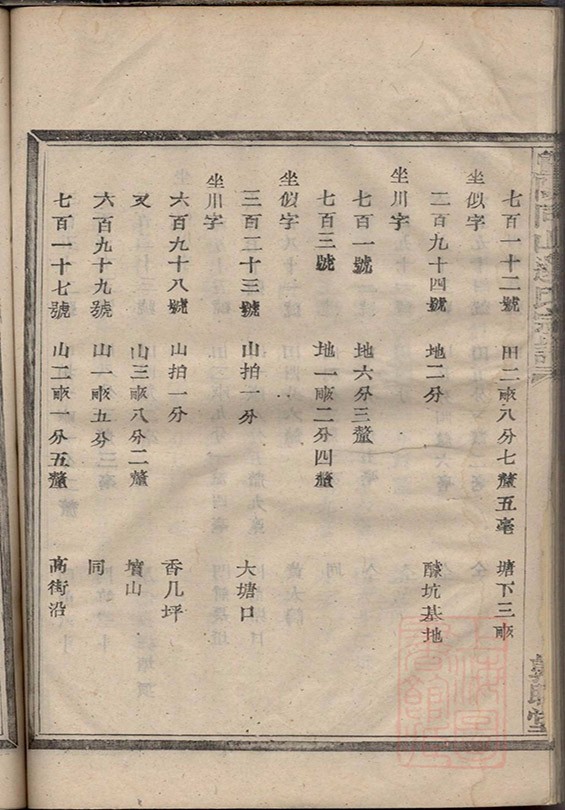 七百一十二號 田二畝八分七釐五毫 塘下三畝
坐似字
二百九十四號 地二分 醵坑基地
坐川字
七百一號 地六分三釐
七百三號 地一畝二分四釐
坐似字
三百三十三號 山拍一分 大塘口
坐川字
六百九十八號 山拍一分 香几坪
又 山三畝八分二釐 墳山
六百九十九號 山一畝五分 同
七百一十七號 山二畝一分五釐 高街沿